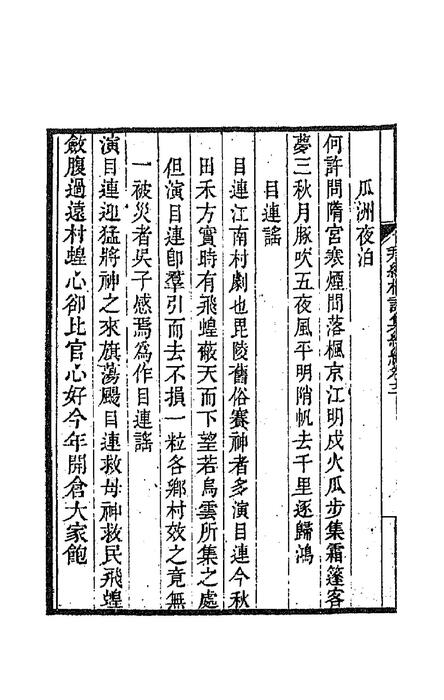 瓜洲夜泊
何許問隋宮寒煙問落楓京江明戍火瓜步集霜篷客
夢三秋月豚吹五夜風平明隋帆去千里逐歸鴻
目連謠
目連江南村劇也毘陵舊俗賽神者多演目連今秋
田禾方實時有飛蝗蔽天而下望若烏雲所集之處
但演目連卽羣引而去不損一粒各鄉村效之竟無
一被災者吳子感焉為作目連謠
演目連迎猛將神之來旗蕩颺目連救母神救民飛蝗
斂腹過遠村蝗心卻比官心好今年開倉大家飽